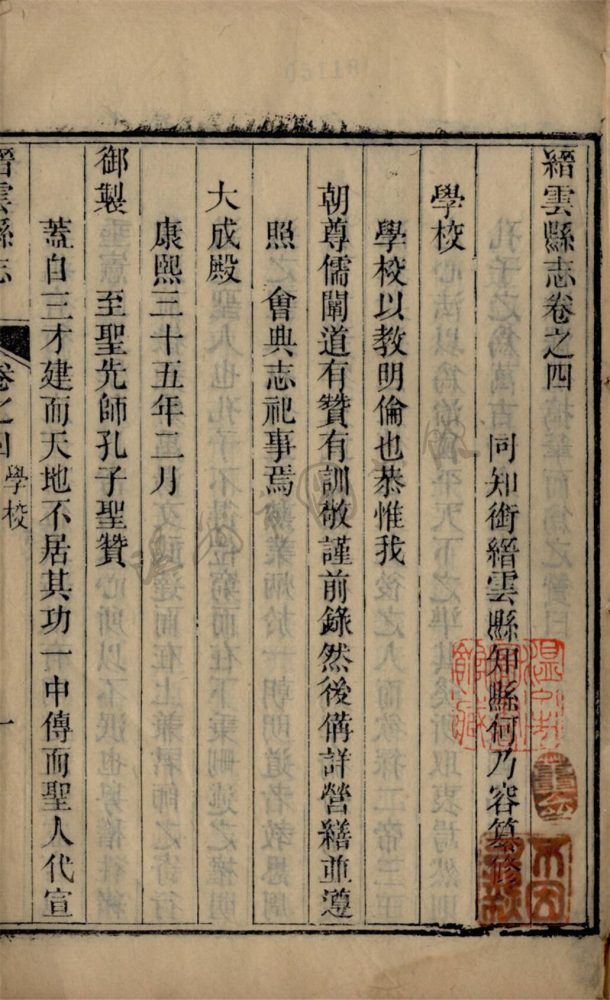 縉雲縣志卷之四
同知銜縉雲縣知縣何乃容纂修
學校
學校以教明倫也恭惟我
朝尊儒闡道有贊有訓敬謹前錄然後僃詳營繕並遵
照　會典志祀事焉
大成殿
康熙三十五年二月
御製　至聖先師孔子聖贊
蓋自三才建而天地不居其功一中傳而聖人代宣
縉雲縣志　卷之四　學校　一